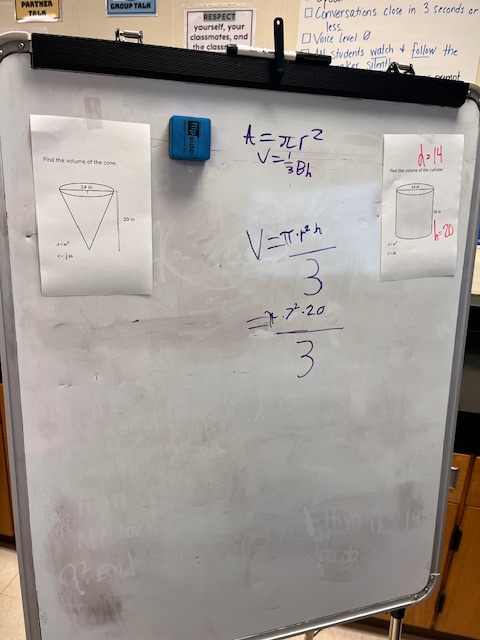 PARTNER
TALK
GROUP TALK
RESPECT
yourself, your
classmates, and
the classr
Conversations close in 3 seconds or
less.
Voice Level 0
All students watch & follow the
silently
prompt
Find the volume of the cone.
14 in
20 in
A = πr²
V = 1/3 Bh
V = π·r²h
3
= π·7²·20
3
d=14
Find the volume of the cylinder
14 in
h=20